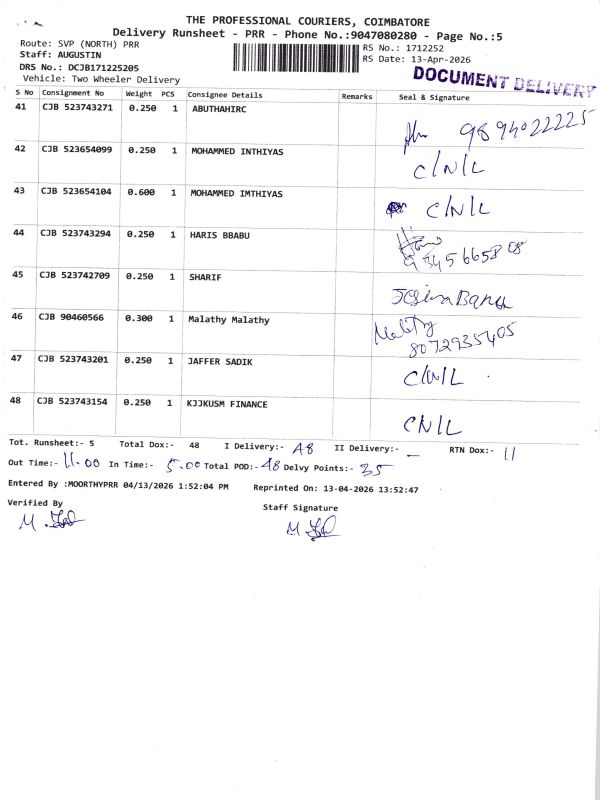 THE PROFESSIONAL COURIERS, COIMBATORE
Delivery Runsheet - PRR - Phone No.:9047080280 - Page No.:5
Route: SVP (NORTH) PRR
Staff: AUGUSTIN
DRS No.: DCJB171225205
Vehicle: Two Wheeler Delivery
RS No.: 1712252
RS Date: 13-Apr-2026
DOCUMENT DELIVERY
S No Consignment No Weight PCS Consignee Details Remarks Seal & Signature
41 CJB 523743271 0.250 1 ABUTHAHIRC
9894022225
42 CJB 523654099 0.250 1 MOHAMMED INTHIYAS C/N/L
43 CJB 523654104 0.600 1 MOHAMMED IMTHIYAS C/N/L
44 CJB 523743294 0.250 1 HARIS BBABU
45 CJB 523742709 0.250 1 SHARIF
Banu
46 CJB 90460566 0.300 1 Malathy Malathy
8072935405
47 CJB 523743201 0.250 1 JAFFER SADIK C/N/L
48 CJB 523743154 0.250 1 KJJKUSM FINANCE CN/L
Tot. Runsheet:- 5 Total Dox:- 48 I Delivery:- 48 II Delivery:- — RTN Dox:- 11
Out Time:- 11.00 In Time:- 5.00 Total POD:- 48 Delvy Points:- 35
Entered By :MOORTHYPRR 04/13/2026 1:52:04 PM Reprinted On: 13-04-2026 13:52:47
Verified By Staff Signature